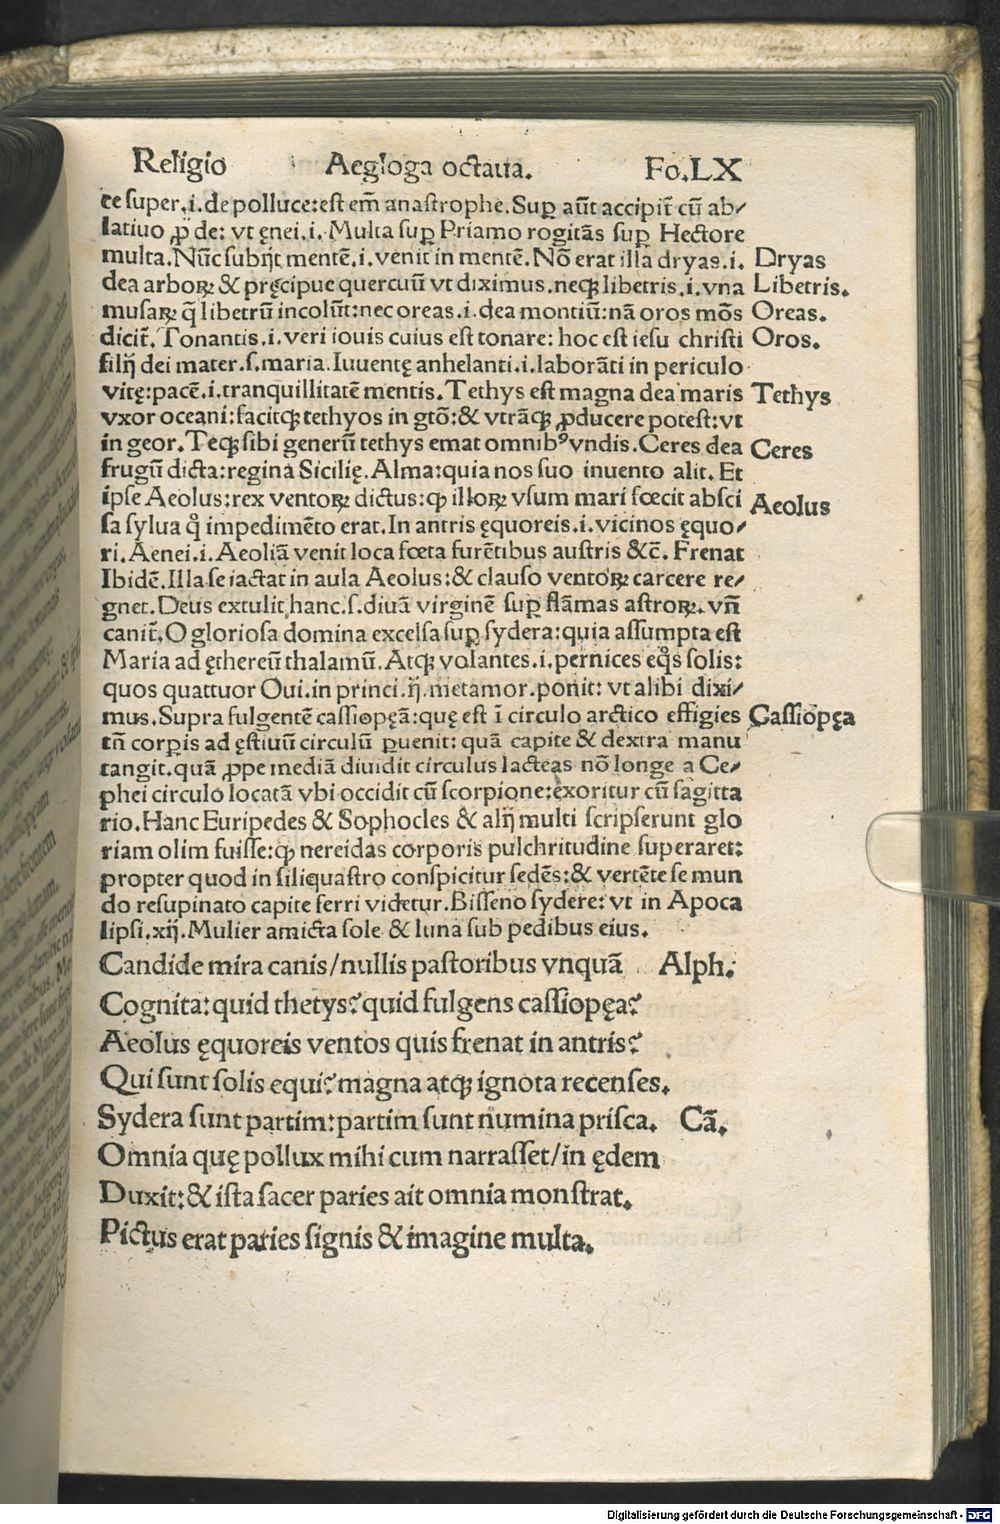 Religio Aegloga octaua. Fo.LX
te super.i.de polluce:est em̃ anastrophe.Suꝑ aũt accipit̃ cũ ab/
latiuo ꝓ de: vt ęnei.i. Multa suꝑ Priamo rogitãs suꝑ Hectore
multa.Nũc subijt mentẽ.i.venit in mentẽ.Nõ erat illa dryas.i. Dryas
dea arboꝝ & pręcipue quercuũ vt diximus.neqꝫ libetris.i.vna Libetris.
musaꝝ q̃ libetrũ incolũt:nec oreas.i.dea montiũ:nã oros mõs Oreas.
dicit̃.Tonantis.i.veri iouis cuius est tonare: hoc est iesu christi Oros.
filij dei mater.s.maria.Iuuentę anhelanti.i.laborãti in periculo
vitę:pacẽ.i.tranquillitatẽ mentis.Tethys est magna dea maris Tethys
vxor oceani:facitqꝫ tethyos in gtõ:& vtrãqꝫ ꝓducere potest:vt
in geor.Teqꝫ sibi generũ tethys emat omnibꝰ vndis.Ceres dea Ceres
frugũ dicta:regina Sicilię.Alma:quia nos suo inuento alit. Et
ipse Aeolus:rex ventoꝝ dictus:ꝙ illoꝝ vsum mari fœcit absci Aeolus
sa sylua qͦ impedimẽto erat.In antris ęquoreis.i.vicinos ęquo/
ri.Aenei.i.Aeoliã venit loca fœta furẽtibus austris &c̃. Frenat
Ibidẽ.Illa se iactat in aula Aeolus:& clauso ventoꝝ carcere re/
gnet.Deus extulit hanc.s.diuã virginẽ suꝑ flãmas astroꝝ.vñ
canit̃.O gloriosa domina excelsa suꝑ sydera:quia assumpta est
Maria ad ęthereũ thalamũ.Atqꝫ volantes.i.pernices eqͦs solis:
quos quattuor Oui.in princi.ij.metamor.ponit: vt alibi dixi/
mus.Supra fulgentẽ cassiopęã:quę est ĩ circulo arctico effigies Cassiopęa
tñ corꝑis ad ęstiuũ circulũ ꝑuenit: quã capite & dextra manu
tangit.quã ꝓpe mediã diuidit circulus lacteas nõ longe a Ce/
phei circulo locatã vbi occidit cũ scorpione:exoritur cũ sagitta
rio.Hanc Euripedes & Sophocles & alij multi scripserunt glo
riam olim fuisse:ꝙ nereidas corporis pulchritudine superaret:
propter quod in siliquastro conspicitur sedẽs:& vertẽte se mun
do resupinato capite ferri videtur.Bisseno sydere: vt in Apoca
lipsi.xij.Mulier amicta sole & luna sub pedibus eius.
Candide mira canis/nullis pastoribus vnquã Alph.
Cognita:quid thetys?quid fulgens cassiopęa?
Aeolus ęquoreis ventos quis frenat in antris?
Qui sunt solis equi?magna atqꝫ ignota recenses.
Sydera sunt partim:partim sunt numina prisca. Cã.
Omnia quę pollux mihi cum narrasset/in ędem
Duxit:& ista sacer paries ait omnia monstrat.
Pictus erat paries signis & imagine multa.
Digitalisierung gefördert durch die Deutsche Forschungsgemeinschaft - DFG